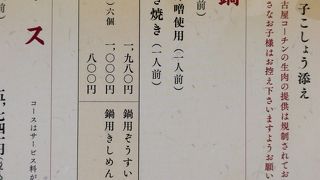 子こしょう添え
古屋コーチンの生肉の提供は規制されてお
さなお子様はお控え下さいますようお願い
鍋
噌使用（二人前）
き焼き（一人前）
六個
一、九八〇円 鍋用ぞうすい
一、〇〇〇円 鍋用きしめん
八〇〇円
ス
コースはサービス料が